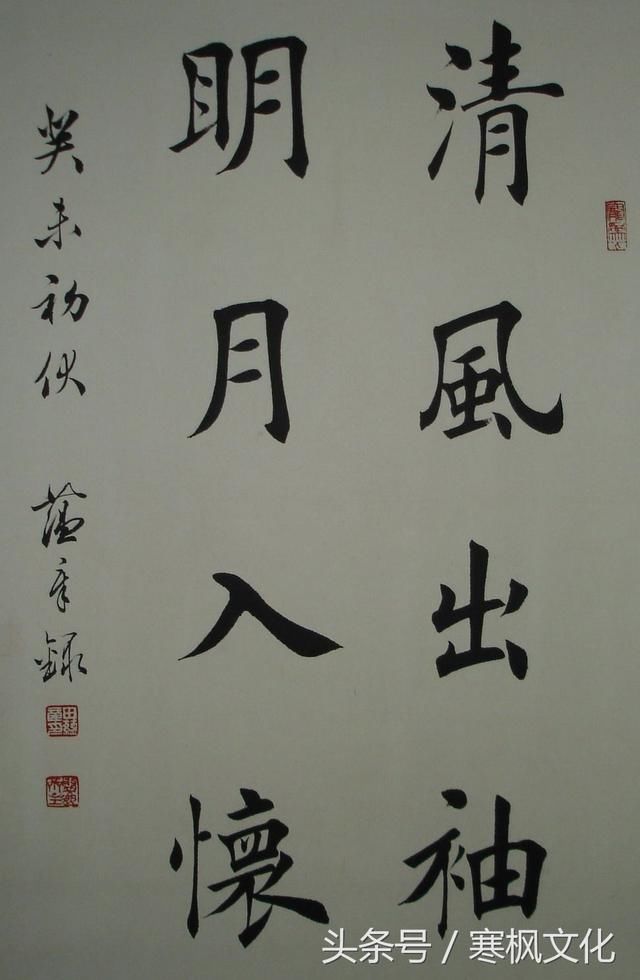 清風出袖
明月入懷
癸未初伏 蘊章録
头条号 / 寒枫文化